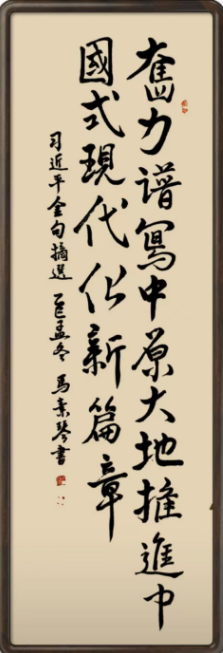 奮力譜寫中原大地推進中
國式現代化新篇章
习近平金句摘選 乙巳孟冬 馬素琴書